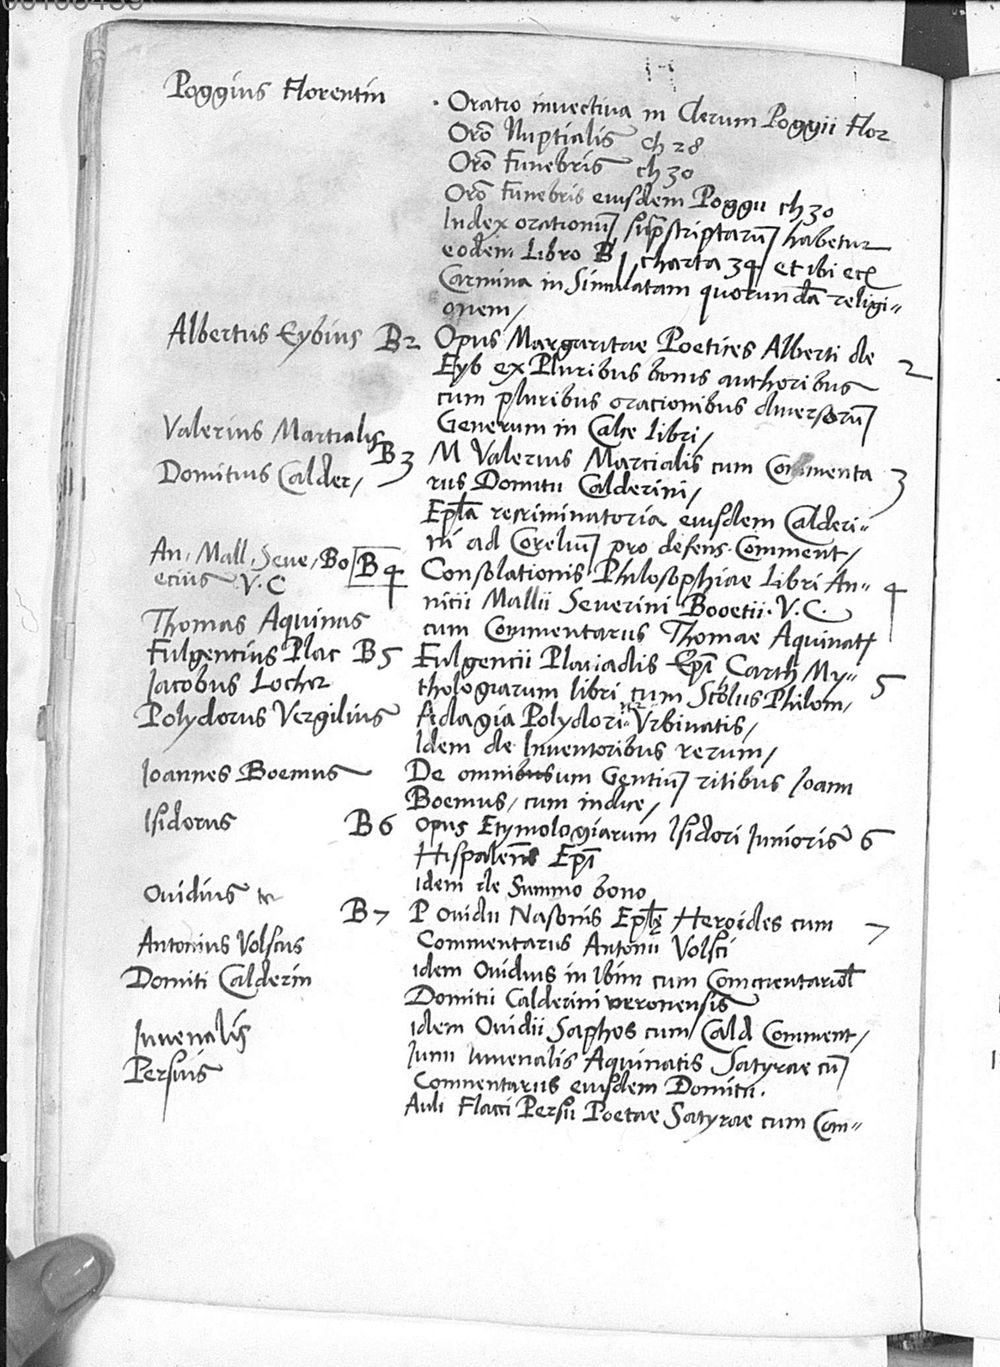 Poggius Florentin
· Oratio invectiva in Clerum Poggii Flor
Orõ Nuptialis ch 28
Orõ Funebris ch 30
Orõ Funebris eiusdem Poggii ch 30
Index orationũ suprascriptarũ habetur
eodem Libro B1 charta 34 et ibi
Carmina in Simulatam quorundã religi=
onem/
Albertus Eybius B2 Opus Margaritae Poetices Alberti de 2
Eyb ex Pluribus bonis authoribus
cum pluribus oracionibus diversorũ
Generum in Calce Libri/
Valerius Martialis B3 M Valerius Martialis cum Commenta 3
Domitius Calder/ rus Domitii Calderini/
Epĩa recriminatoria eiusdem Calderi=
ni ad Coreliũ pro defens. Comment/
An. Mall. Seve. Bo B4 Consolationis Philosophiae Libri An= 4
ecius V.C nitii Mallii Severini Booetii. V. C.
Thomas Aquinus cum Commentarus Thomae Aquinat
Fulgentius Plac B5 Fulgencii Placiadis Epĩ Carth My= 5
Jacobus Locher thologiarum libri cum Scolus Philom/
Polydorus Vergilius Adagia Polydori Vrbinatis/
Idem de Inventoribus rerum/
Joannes Boemus De omnium Gentiũ ritibus Joann
Boemus/ cum indice/
Isidorus B6 Opus Etymologiarum Isidori Junioris 6
Hispaleñs Epĩ
idem de Summo bono
Ovidius B7 P Ovidii Nasonis Eplę Heroides cum 7
Antonius Volscus Commentarus Antonii Volsci
Domiti Calderin idem Ovidius in Ibim cum Commentariol
Domitii Calderini veronensis
idem Ovidii Saphos cum Cald Comment/
Juvenalis Junii Iuvenalis Aquinatis Satyrae cũ
Persius Commentarus eiusdem Domitii.
Auli Flacci Persii Poetae Satyrae cum Com=